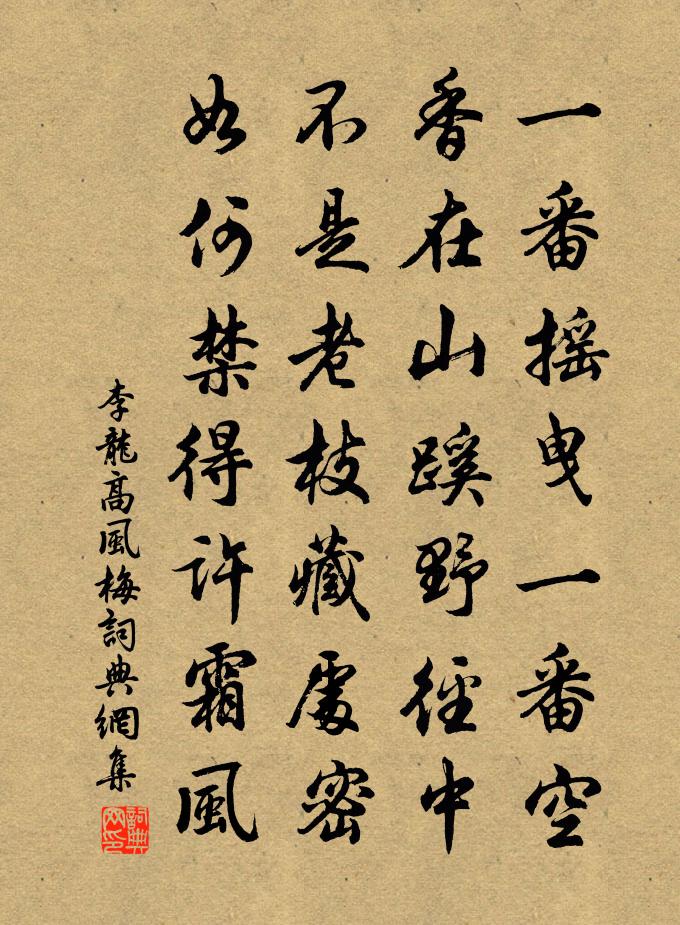 一番摇曳一番空
香在山蹊野徑中
不是老枝藏處密
如何禁得許霜風
李龍高風梅詞典網集
詞典網印